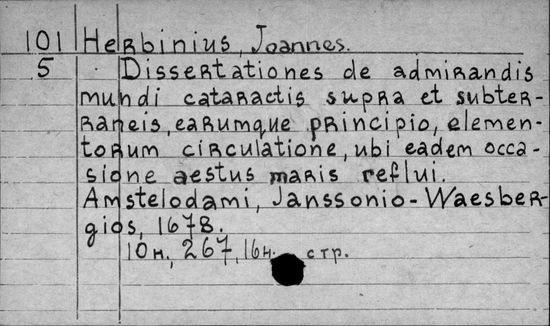 101 Herbinius, Joannes.
5 Dissertationes de admirandis
mundi cataractis supra et subter-
raneis, earumque principio, elemen-
torum circulatione, ubi eadem occa-
sione aestus maris reflui.
Amstelodami, Janssonio-Waesber-
gios, 1678.
10н., 267, 16н. стр.